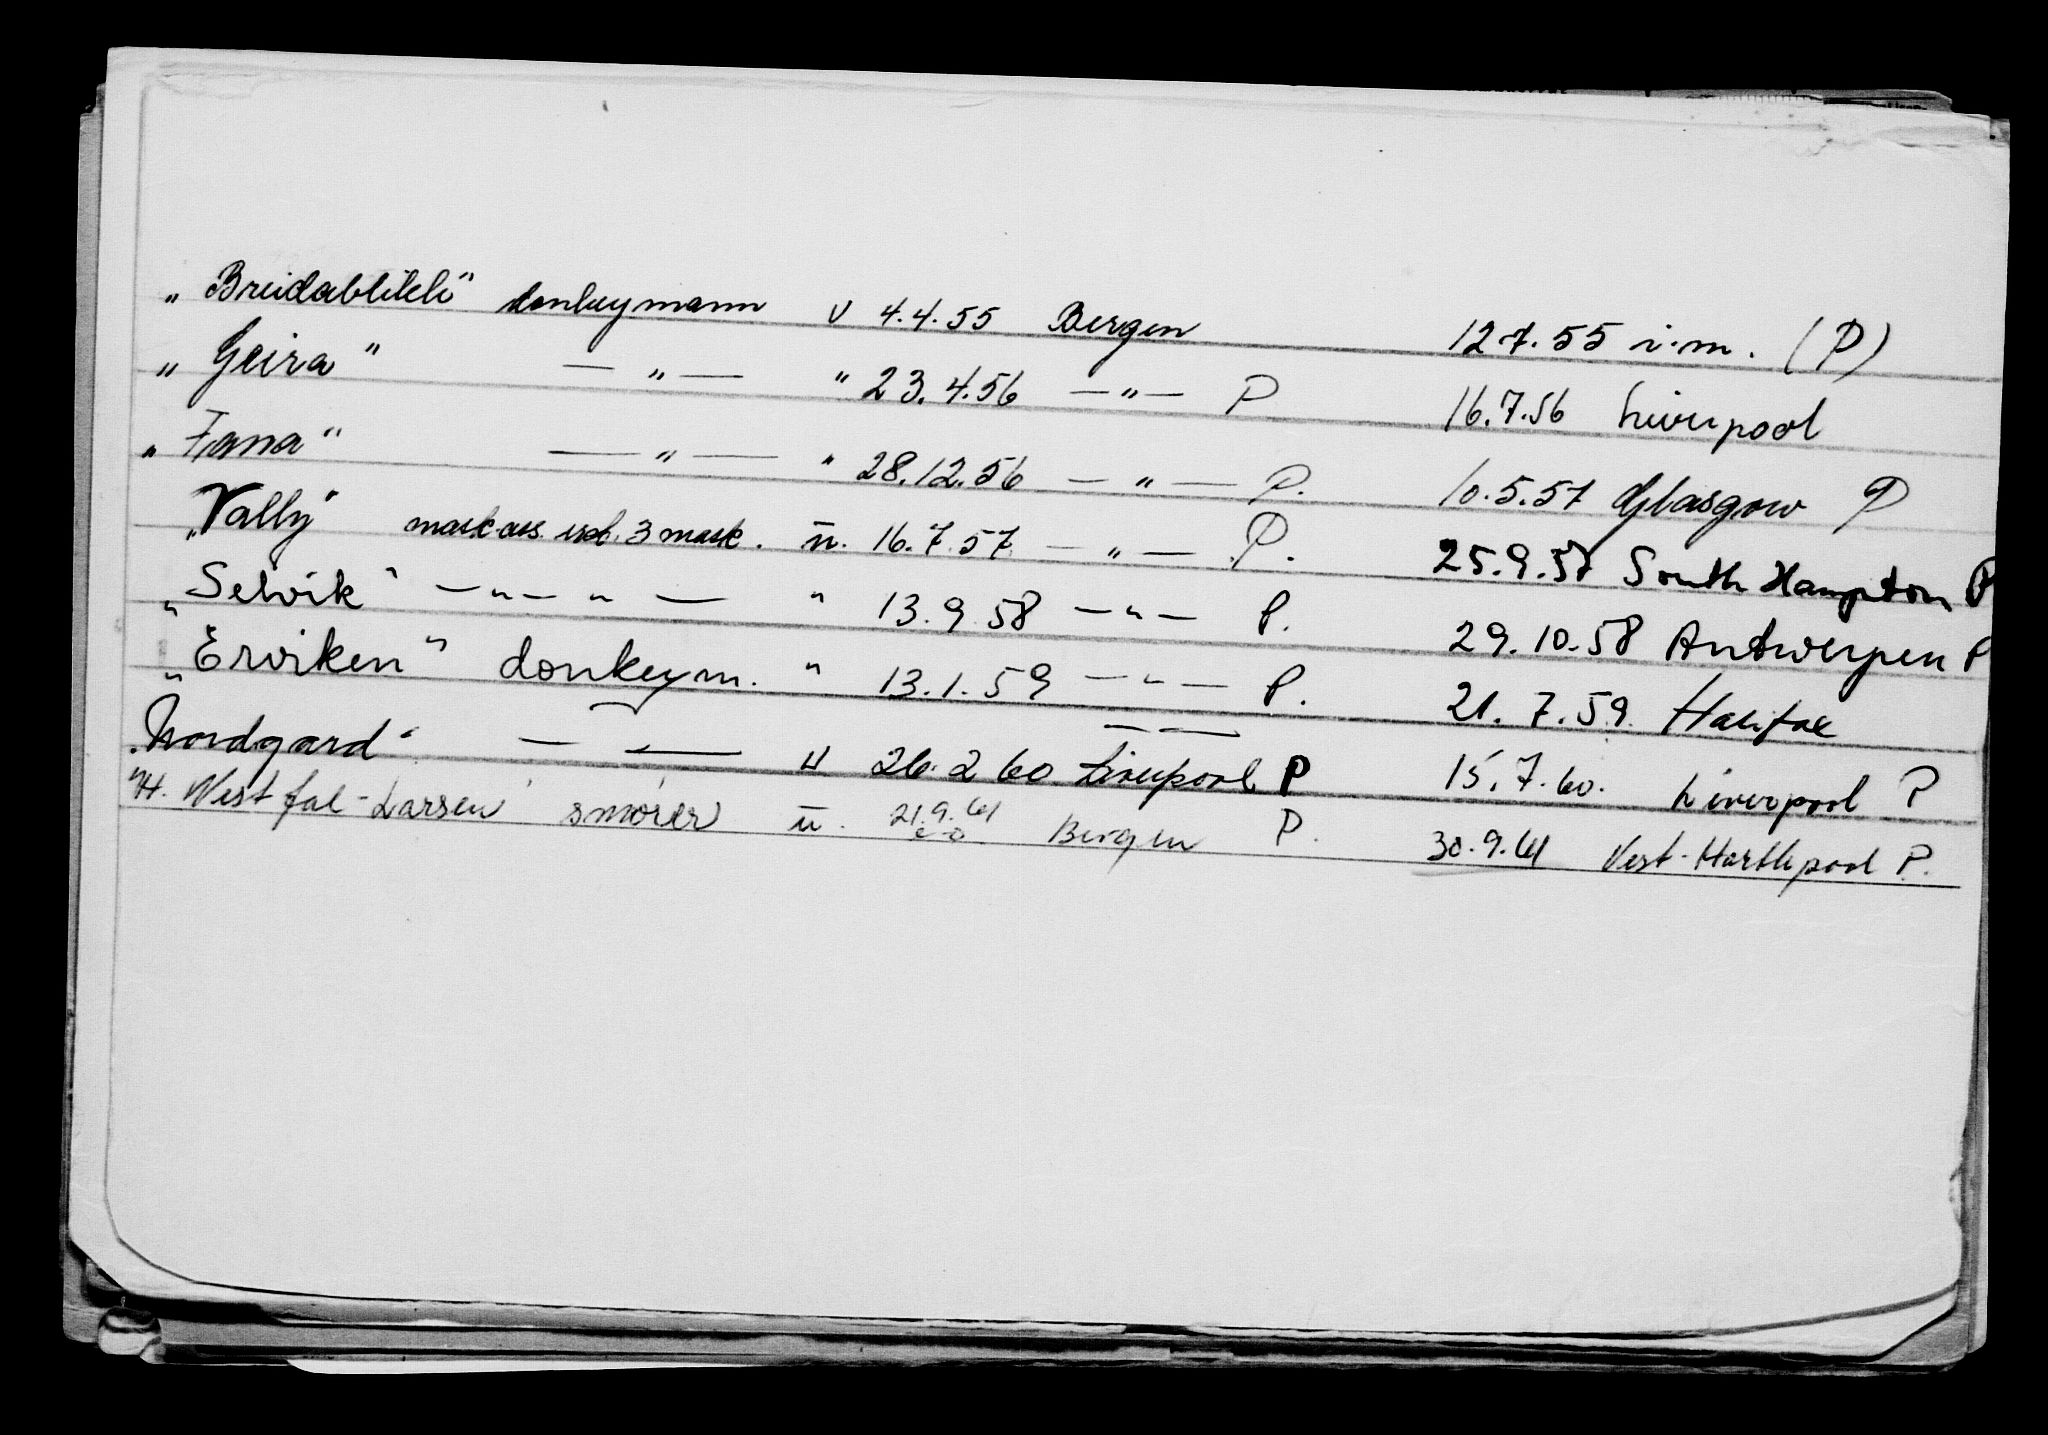 „Breidablikk" donkeymann v 4.4.55 Bergen 12.7.55 i.m. (P)
„Geira" — „ — " 23.4.56 — " — P 16.7.56 Liverpool
„Fana" — " — " 28.12.56 — " — P. 10.5.57 Glasgow P
„Vally" mask.ass. 3 mask. u. 16.7.57 — " — P. 25.9.57 South Hampton P
„Selvik" — " — " — " 13.9.58 — " — P. 29.10.58 Antwerpen P
„Erviken" donkeym. " 13.1.59 — " — P. 21.7.59. Halifax
„Nordgard" — — u 26.2 60 Liverpool P 15.7.60. Liverpool P
"H. Westfal-Larsen" smører u. 21.9.61 Bergen P. 30.9.61 Vest-Hartlepool P.